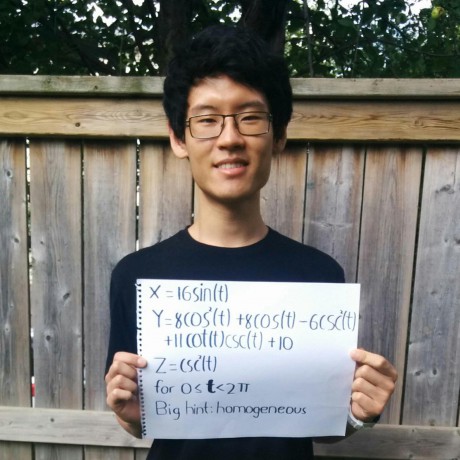 X = 16sin(t)
Y = 8cos²(t) + 8cos(t) - 6csc²(t)
+ 11cot(t)csc(t) + 10
Z = csc²(t)
for 0 ≤ t < 2π
Big hint: homogeneous